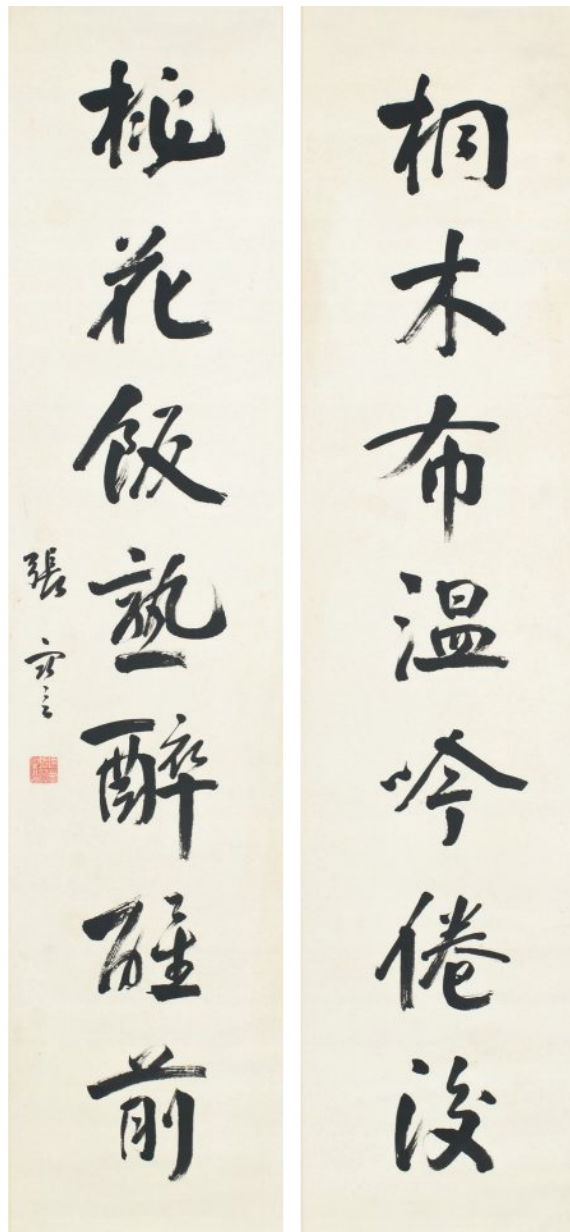 桐木布温吟倦後
桃花飯熟醉醒前
張謇